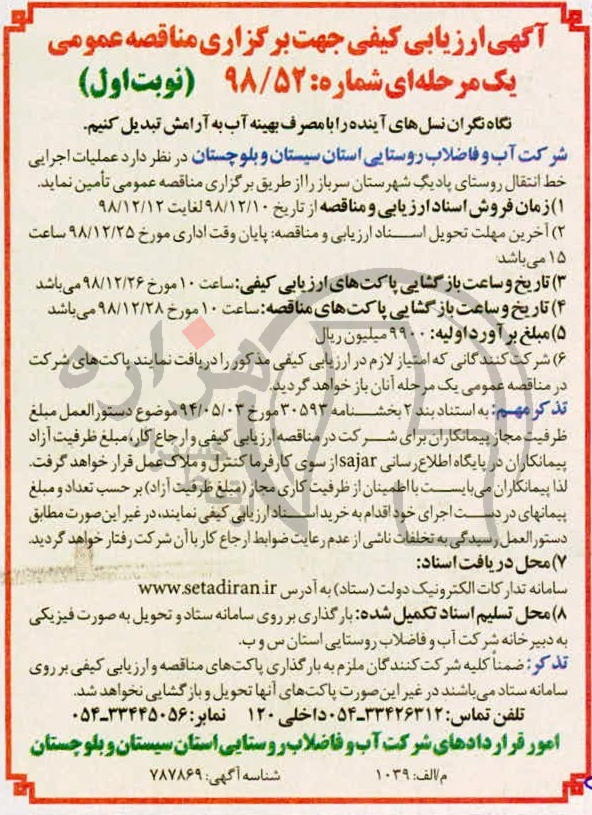 آگهی ارزیابی کیفی جهت برگزاری مناقصه عمومی
یک مرحله‌ای شماره: ۹۸/۵۲ (نوبت اول)
نگاه نگران نسل‌های آینده را با مصرف بهینه آب به آرامش تبدیل کنیم.
شرکت آب و فاضلاب روستایی استان سیستان و بلوچستان در نظر دارد عملیات اجرایی
خط انتقال روستای پادیگ شهرستان سرباز را از طریق برگزاری مناقصه عمومی تأمین نماید.
۱) زمان فروش اسناد ارزیابی و مناقصه از تاریخ ۹۸/۱۲/۱۰ لغایت ۹۸/۱۲/۱۲
۲) آخرین مهلت تحویل اسناد ارزیابی و مناقصه: پایان وقت اداری مورخ ۹۸/۱۲/۲۵ ساعت
۱۵ می‌باشد
۳) تاریخ و ساعت بازگشایی پاکت‌های ارزیابی کیفی: ساعت ۱۰ مورخ ۹۸/۱۲/۲۶ می‌باشد
۴) تاریخ و ساعت بازگشایی پاکت‌های مناقصه: ساعت ۱۰ مورخ ۹۸/۱۲/۲۸ می‌باشد
۵) مبلغ برآورد اولیه: ۹۹۰۰ میلیون ریال
۶) شرکت کنندگانی که امتیاز لازم در ارزیابی کیفی مذکور را دریافت نمایند پاکت‌های شرکت
در مناقصه عمومی یک مرحله آنان باز خواهد گردید.
تذکر مهم: به استناد بند ۲ بخشنامه ۳۰۵۹۳ مورخ ۹۴/۰۵/۰۳ موضوع دستورالعمل مبلغ
ظرفیت مجاز پیمانکاران برای شرکت در مناقصه ارزیابی کیفی و ارجاع کار، مبلغ ظرفیت آزاد
پیمانکاران در پایگاه اطلاع رسانی sajar از سوی کارفرما کنترل و ملاک عمل قرار خواهد گرفت.
لذا پیمانکاران می‌بایست با اطمینان از ظرفیت کاری مجاز (مبلغ ظرفیت آزاد) بر حسب تعداد و مبلغ
پیمانهای در دست اجرای خود اقدام به خرید اسناد ارزیابی کیفی نمایند، در غیر این صورت مطابق
دستورالعمل رسیدگی به تخلفات ناشی از عدم رعایت ضوابط ارجاع کار با آن شرکت رفتار خواهد گردید.
۷) محل دریافت اسناد:
سامانه تدارکات الکترونیک دولت (ستاد) به آدرس www.setadiran.ir
۸) محل تسلیم اسناد تکمیل شده: بارگذاری بر روی سامانه ستاد و تحویل به صورت فیزیکی
به دبیرخانه شرکت آب و فاضلاب روستایی استان س و ب.
تذکر: ضمناً کلیه شرکت کنندگان ملزم به بارگذاری پاکت‌های مناقصه و ارزیابی کیفی بر روی
سامانه ستاد می‌باشند در غیر این صورت پاکت‌های آنها تحویل و بازگشایی نخواهد شد.
تلفن تماس: ۳۳۴۲۶۳۱۲-۰۵۴ داخلی ۱۲۰ نمابر: ۳۳۴۴۵۰۵۶-۰۵۴
امور قراردادهای شرکت آب و فاضلاب روستایی استان سیستان و بلوچستان
م/الف: ۱۰۳۹ شناسه آگهی: ۷۸۷۸۶۹
هزاره